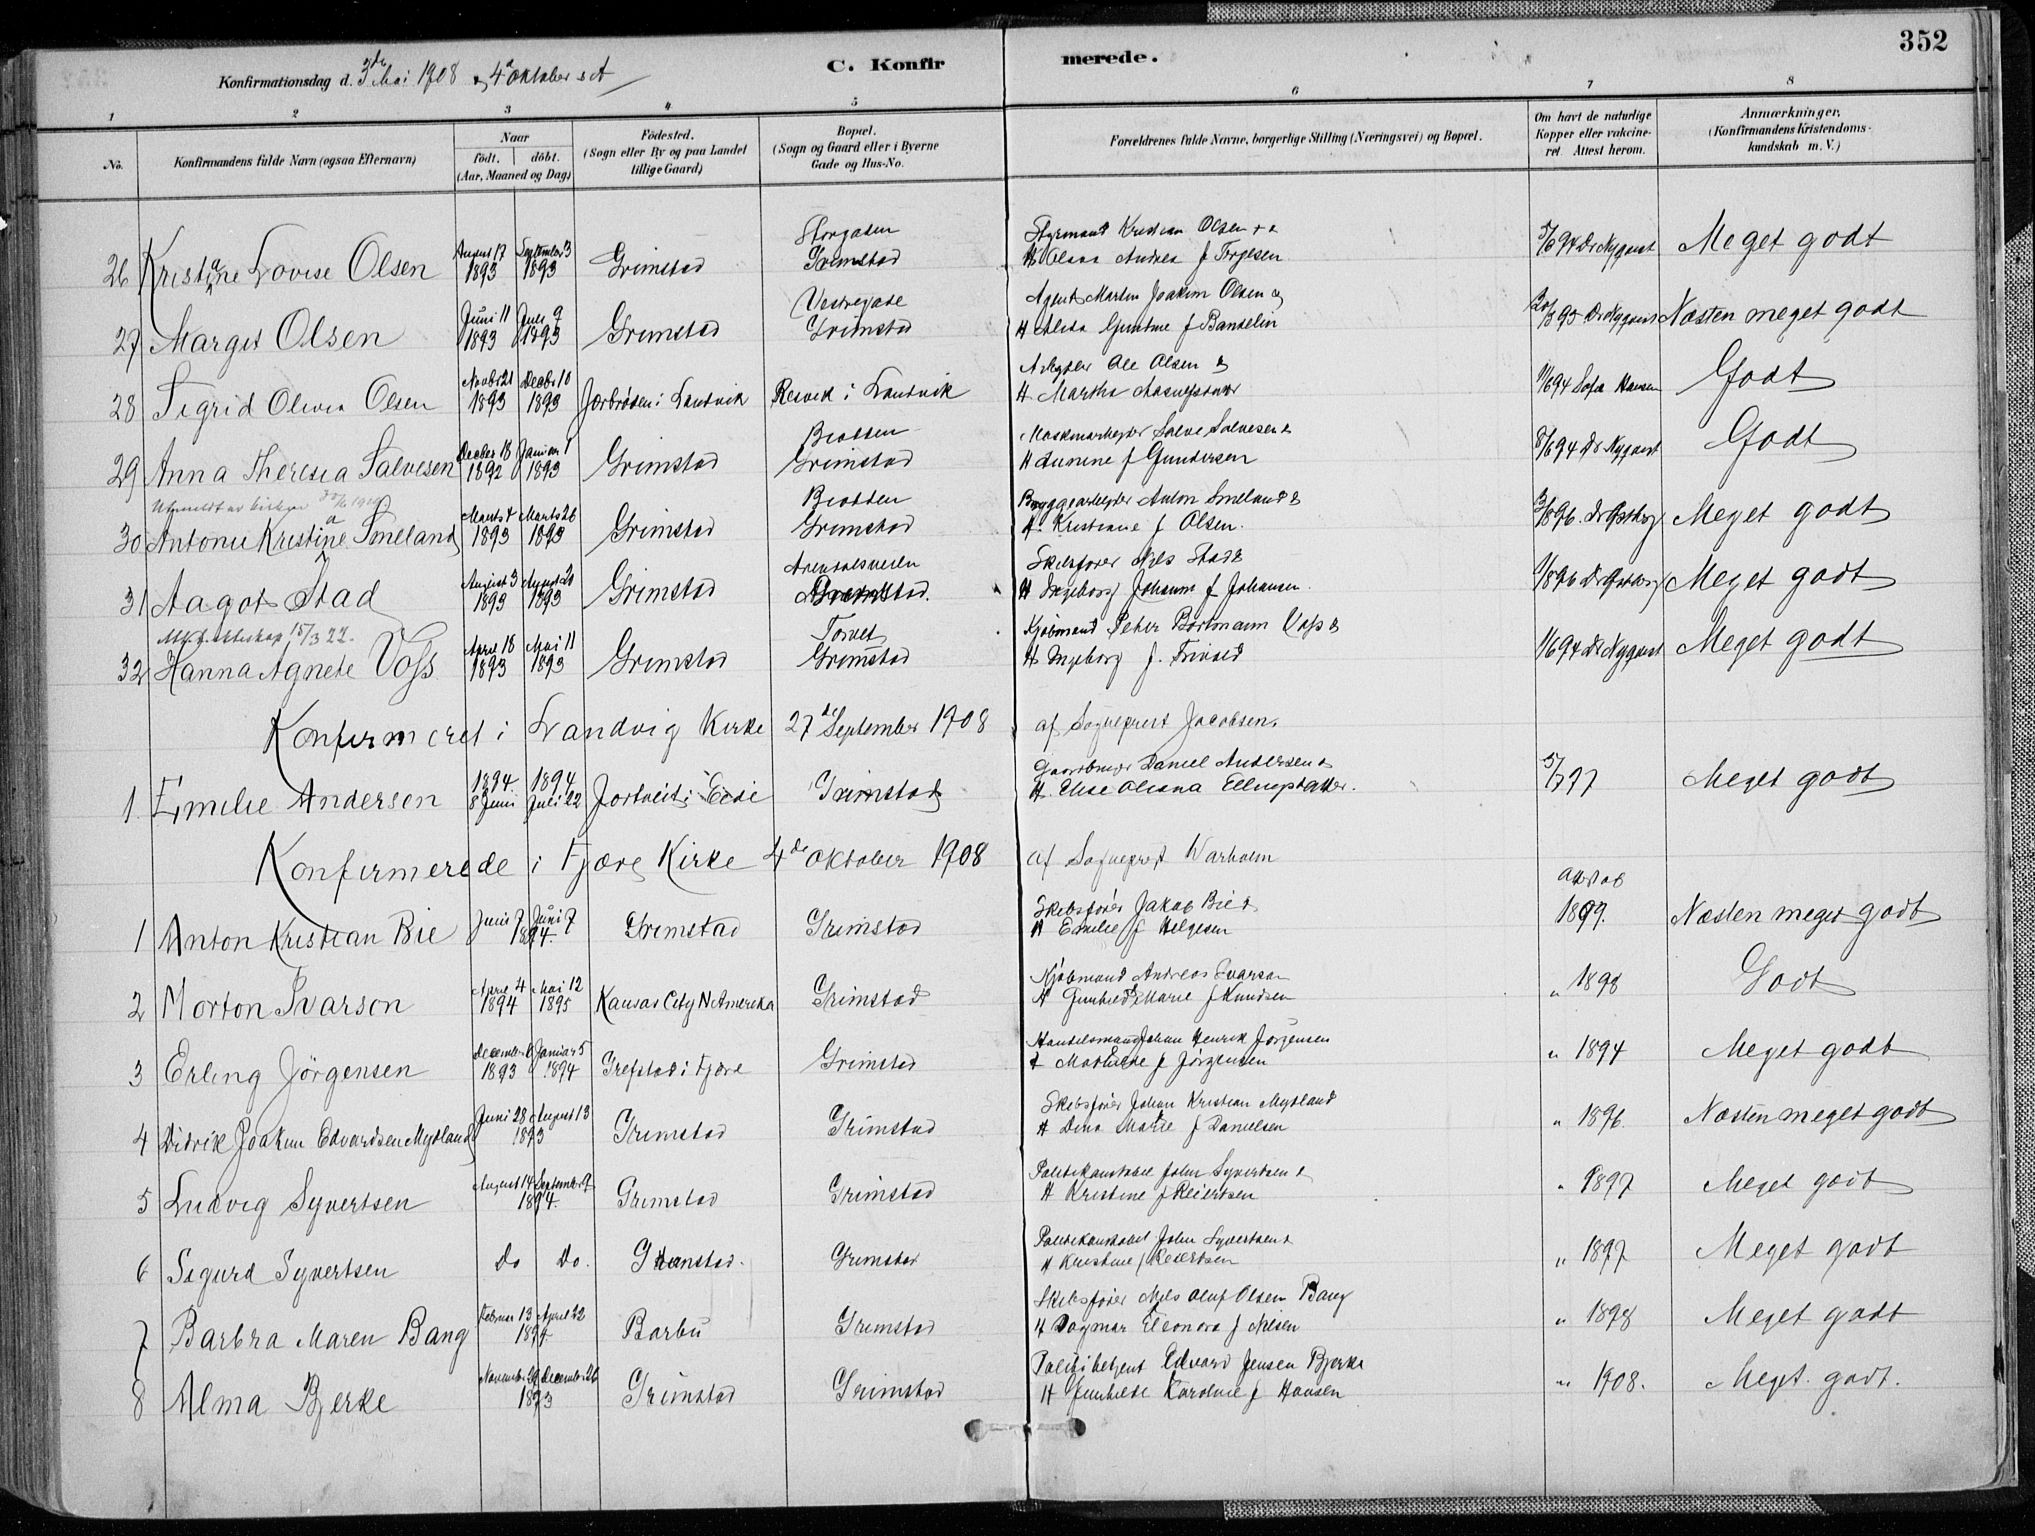 352
Konfirmationsdag d. 3de Mai 1908 og 4de Oktober s A
C. Konfirmerede.
1 2 3 4 5 6 7 8
No.
Konfirmandens fulde Navn (ogsaa Efternavn)
Naar
födt. döbt.
(Aar, Maaned og Dag)
Födested.
(Sogn eller By og paa Landet
tillige Gaard)
Bopæl.
(Sogn og Gaard eller i Byerne
Gade og Hus-No.
Forældrenes fulde Navne, borgerlige Stilling (Næringsvei) og Bopæl.
Om havt de naturlige
Kopper eller vakcine-
ret. Attest herom.
Anmærkninger.
(Konfirmandens Kristendoms-
kundskab m. V.)
Storgaden Styrmand Kristian Olsen
26 Kristiane Lovise Olsen August 17 1893 September 3 1893 Grimstad Grimstad H Olava Andrea f Terjesen Dr Nygaard Meget godt
Vestregade Agent Martin Joakim Olsen og
27 Margit Olsen Juni 11 1893 Juli 9 1893 Grimstad Grimstad H Alida f Bandelin Dr Nygaard Næsten meget godt
Arbeider Ole Olsen &
28 Sigrid Olivia Olsen Novbr 21 1893 Decbr 10 1893 i Landvik i Landvik H Martha 11/6 94 Sofie Hansen Godt
Bratten Maskinarbeider Salve Salvesen &
29 Anna Theresia Salvesen Decber 18 1892 Januar 1 1893 Grimstad Grimstad H f Gundersen 8/6 94 Dr Nygaard Godt
Utmeldt av kirken
Bratten Bryggearbeider Anton Smeland &
30 Antonie Kristiane Smeland Marts 4 1893 Marts 26 1893 Grimstad Grimstad H. Kristiane f Olsen. Meget godt
Arendalsveien Skibsfører Nils Stad &
31 Aagot Stad August 3 1893 August 20 1893 Grimstad Grimstad. H Ingeborg Johanne f Johansen. Meget godt
15/3 22.
Torvet Kjøbmand Peter Bortmann Voss &
32 Hanna Agnete Voss April 18 1893 Mai 11 1893 Grimstad Grimstad H Ingeborg f. 11/6 94 Dr Nygaard Meget godt
Konfirmeret i Landvig Kirke 27de September 1908 af Sogneprest Jacobsen.
1894 1894 Gaardbruger Daniel Andersen &
1. Emilie Andersen 8 Juni Juli 22 Jortveit i Eide Grimstad H. Else Oleana 5/7 97 Meget godt
Konfirmerede i Fjære Kirke 4de Oktober 1908 af Sogneprest Warholm
Skibsfører Jakob Bie & Att af
1 Anton Kristian Bie Juni 7 Juni 7 1894. Grimstad Grimstad H Emilie f Helgesen 1897. Næsten meget godt
Kjøbmand Andreas Ivarson
2 Morton Ivarson April 4 1894 Mai 12 1895 Kansas City N. Amerika Grimstad H Gunhild Marie f Knudsen " 1898 Godt
Handelsmand Johan Henrik Jørgensen
3 Erling Jörgensen December 6 1893 Januar 5 1894 Grefstad i Fjære Grimstad & Mathilde f Jørgensen " 1894 Meget godt
Skibsfører Johan Kristian Mydland
4 Didrik Joakim Edvardsen Mydland Juni 28 August 13 1893 Grimstad Grimstad H Dina Marie f Danielsen " 1896. Næsten meget godt
Politikonstabel John Syvertsen &
5 Ludvig Syvertsen August 14 September 9 1894. Grimstad Grimstad H Kristine f Reiertsen " 1897 Meget godt
Politikonstabel John Syvertsen &
6 Sigurd Syvertsen Do Do. Grimstad. Grimstad H Kristine f Reiertsen " 1897 Meget godt
Skibsfører Nils Oluf Olsen Bang
7 Barbra Maren Bang Februar 13 April 22 1894. Barbu Grimstad H Dagmar Eleonora f Nilsen " 1898 Meget godt
Politibetjent Edvard Jensen Bjerke
8 Alma Bjerke Novemb. December 26 1893 Grimstad Grimstad H Gunhilde Karoline f Hansen " 1908. Meget godt.